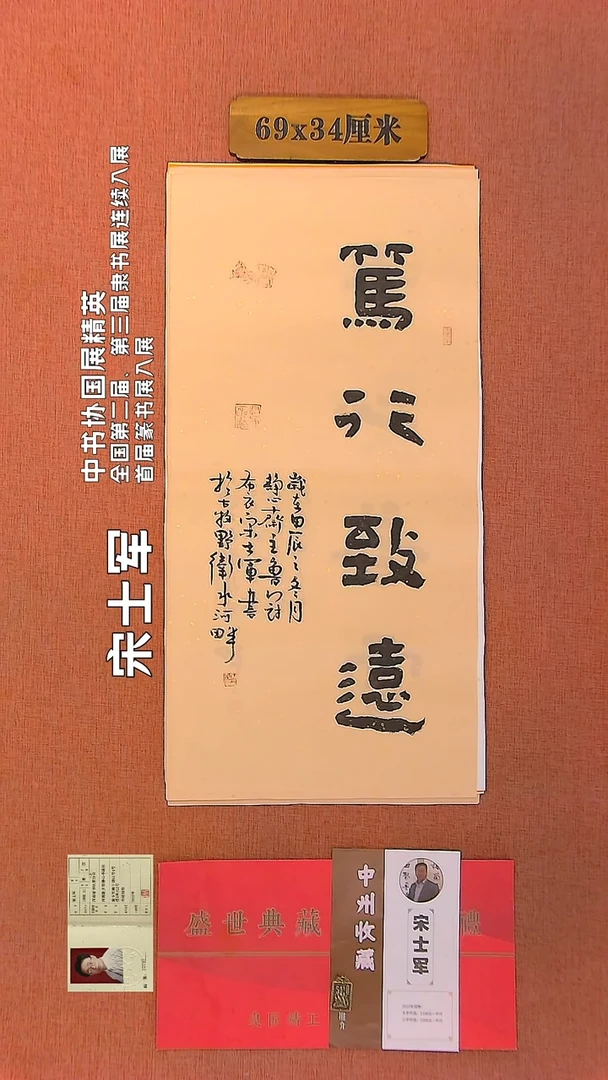 69x34厘米
中书协国展精英
全国第二届、第三届隶书展连续入展
首届篆书展入展
宋士军
篤行致遠
歲在甲辰之冬月
静心齋主魯口封
布衣宋士軍書
於古牧野衛水河
畔
盛世典藏
禮
中州收藏
宋士军